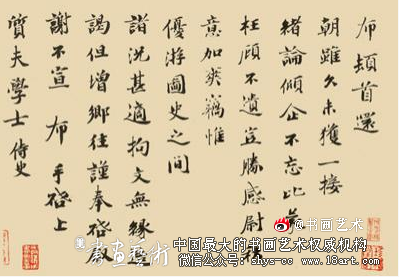 布頓首還
朝雖久未獲一接
緒論傾企不忘比
枉顧不遺豈勝感尉
意加爽竊惟
優游圖史之間
諧況甚適拘文無緣
謁但增鄉往謹奉啓叙
謝不宣 布 手啓上
質夫學士 侍史
@书画艺术
書畫藝術
中国最大的书画艺术权威机构
微信公众名: shys-cc www.18art.com